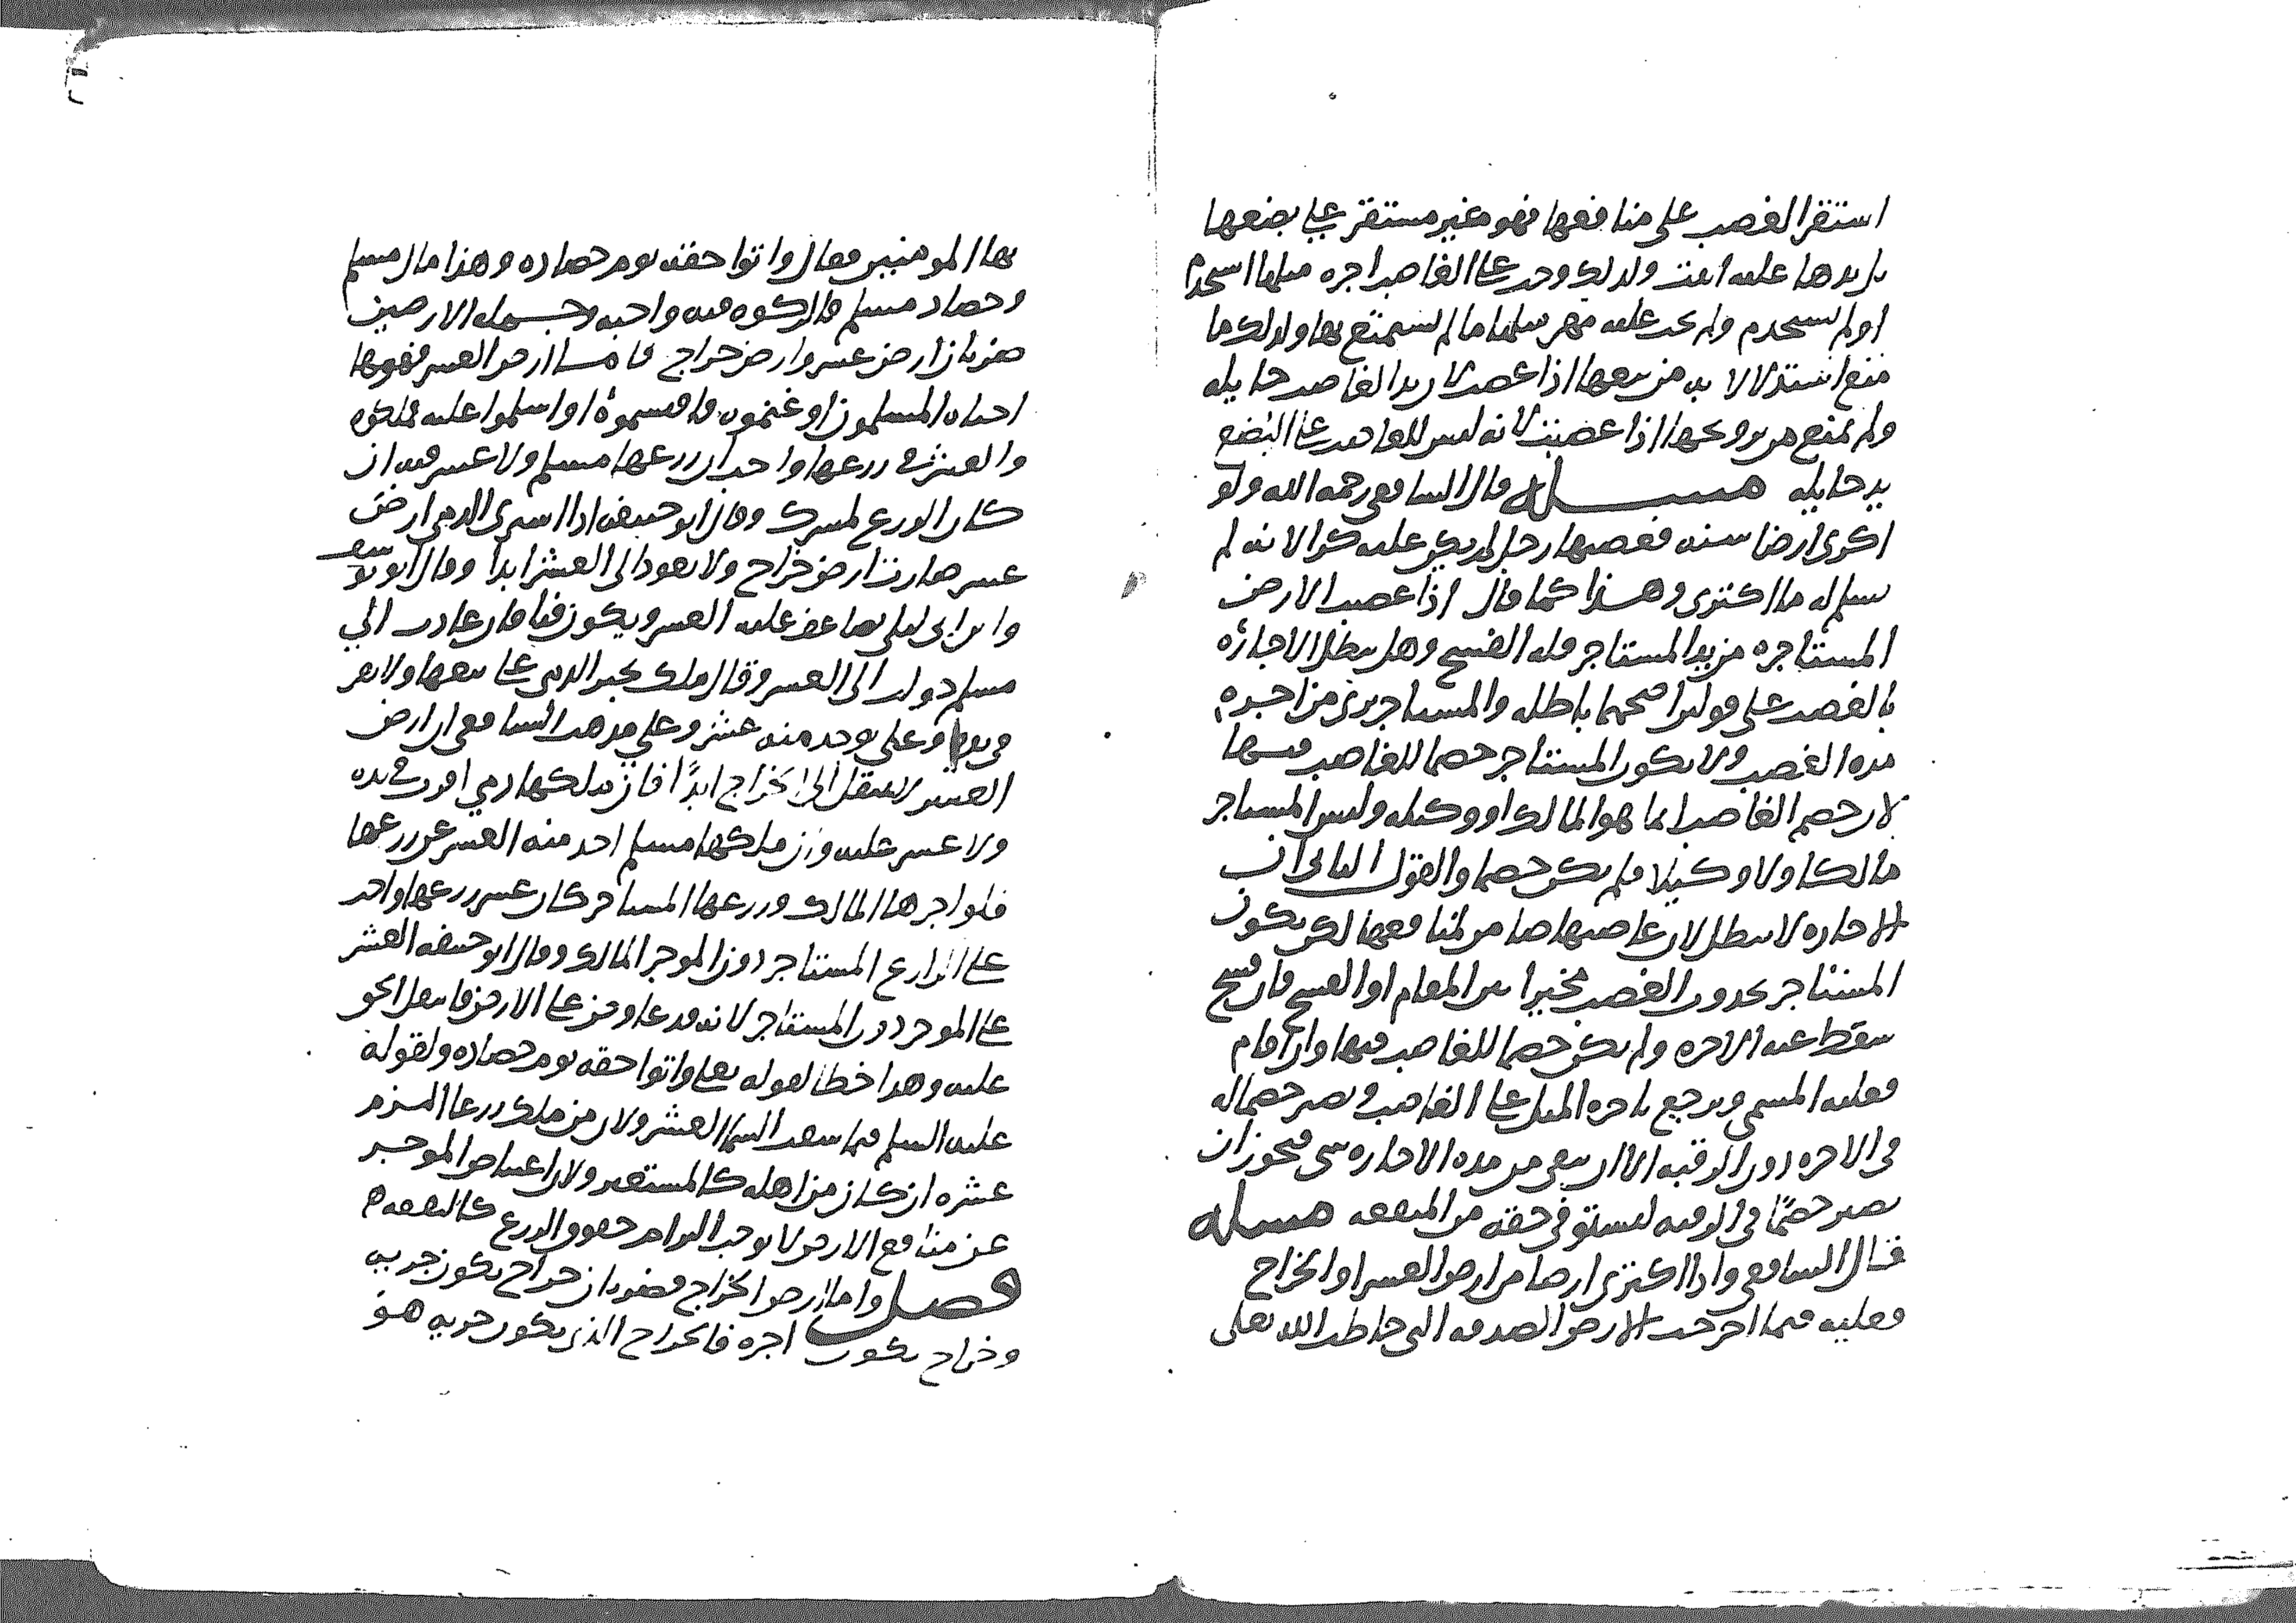 استقر الغصب على منافعها فهو غير مستقر على بضعها
بل يدها عليه اثبت ولذلك وجب على الغاصب اجره مثلها استخدم
او لم يستخدم ولم يجب عليه مهر مثلها ما لم يستمتع بها ولذلك ما
منع استدلالا به من بيعها اذا غصبت لان يد الغاصب حايله
ولم يمنع من تزويجها اذا غصبت لانه ليس للغاصب على البضع
يد حايله مسله قال الشافعي رحمه الله ولو
اكرى ارضا سنه فغصبها رجل لم يكن عليه كرا لانه لم
يسلم له ما اكترى وهذا كما قال اذا غصبت الارض
المستاجره من يد المستاجر فله الفسخ وهل تبطل الاجاره
بالغصب على قولين اصحهما باطله والمستاجر بري من اجره
مده الغصب ولا يكون المستاجر خصما للغاصب فيها
لان خصم الغاصب انما هو المالك او وكيله وليس المستاجر
مالكا ولا وكيلا فلم يكن خصما والقول الثاني ان
الاجاره لا تبطل لان غاصبها ضامن لمنافعها لكن يكون
المستاجر بحدوث الغصب مخيرا بين المقام او الفسخ فان فسخ
سقطت عنه الاجره ولم يكن خصما للغاصب فيها وان اقام
فعليه المسمى ويرجع باجره المثل على الغاصب ويصير خصما له
في الاجره دون الرقبه الا ان يبقى من مده الاجاره شي فيجوز ان
يصير خصما في الرقبه ليستوفي حقه من المنفعه مسله
قال الشافعي واذا اكترى ارضا من ارض العشر او الخراج
فعليه فيما اخرجت الارض الصدقه التي خاطب الله تعالى
بها المومنين فقال واتوا حقه يوم حصاده وهذا مال مسلم
وحصاد مسلم فالزكوه فيه واجبه وجمله الارضين
ضربان ارض عشر وارض خراج فاما ارض العشر فهو ما
احياه المسلمون او غنموه واقتسموه او اسلموا عليه فملكوه
والعشر في زرعها واجب ان زرعها مسلم ولا عشر فيه ان
كان الزرع لمشرك وقال ابو حنيفه اذا اشترى الذمي ارض
عشر صارت ارض خراج ولا يعود الى العشر ابدا وقال ابو يوسف
وابن ابي ليلى يضاعف عليه العشر ويكون فيا فان عادت الى
مسلم عاد الى العشر وقال ملك يجبر الذمي على بيعها ولا يقر
في يده وعلى يوخذ منه عشر وعلى مذهب الشافعي ان ارض
العشر لا ينتقل الى الخراج ابدًا فان ملكها ذمي اقرت في يده
ولا عشر عليه وان ملكها مسلم اخذ منه العشر عن زرعها
فلو اجرها المالك وزرعها المستاجر كان عشر زرعها واجب
على الزارع المستاجر دون الموجر المالك وقال ابو حنيفه العشر
على الموجر دون المستاجر لانه قد عاوض على الارض فانتقل الحق
عليه وهذا خطا لقوله تعالى واتوا حقه يوم حصاده ولقوله
عليه السلم فيما سقت السما العشر ولان من ملك زرعا التزم
عشره ان كان من اهله كالمستعير ولان اعتياض الموجر
عن منافع الارض لا يوجب التزام حقوق الزرع كالنفقه ه
فصل واما ارض الخراج فضربان خراج يكون جزيه
وخراج يكون اجره فالخراج الذي يكون جزيه هو